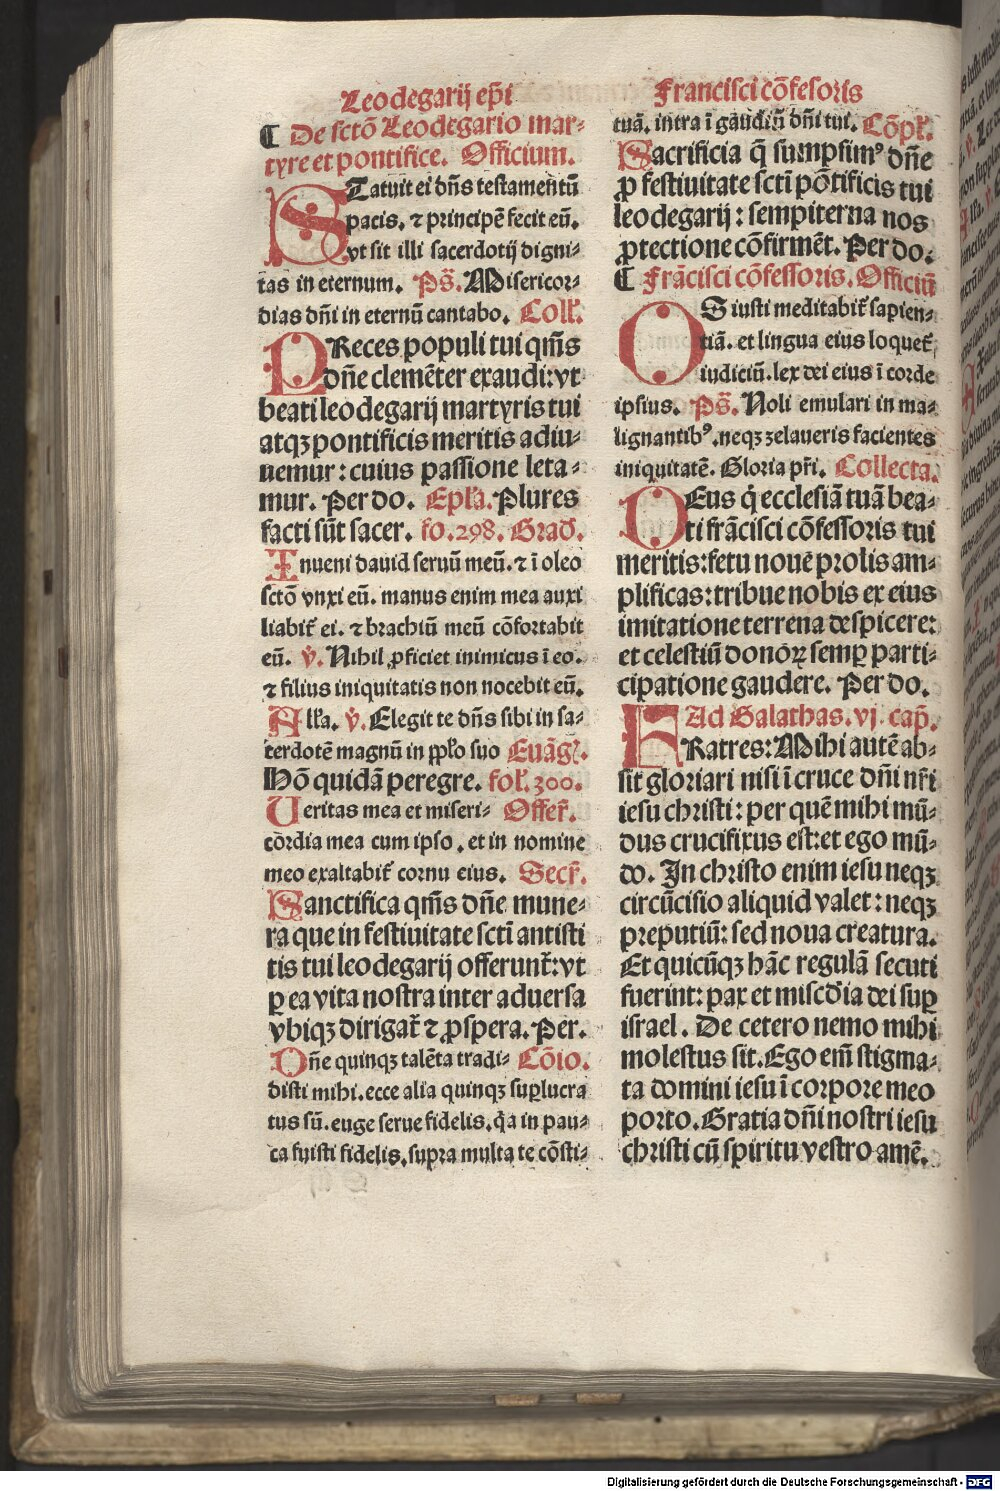 Leodegarij ep̄i
Francisci cōfesoris
¶ De sctō Leodegario mar-
tyre et pontifice. Officium.
STatuit ei dn̄s testamentū
pacis. ⁊ principē fecit eū.
vt sit illi sacerdotij digni-
tas in eternum. Ps̄. Misericor-
dias dn̄i in eternū cantabo. Coll.
PReces populi tui qm̄s
dn̄e clemēter exaudi: vt
beati leodegarij martyris tui
atqꝫ pontificis meritis adiu-
uemur: cuius passione leta-
mur. Per do. Epl̄a. Plures
facti sūt sacer. fo.298. Grad.
Inueni dauid seruū meū. ⁊ ī oleo
sctō vnxi eū. manus enim mea auxi
liabit̄ ei. ⁊ brachiū meū cōfortabit
eū. v̄. Nihil ꝓficiet inimicus ī eo.
⁊ filius iniquitatis non nocebit eū.
All̄a. v̄. Elegit te dn̄s sibi in sa-
cerdotē magnū in ppl̄o suo Euāgl̄.
Hō quidā peregre. fol. 300.
Ueritas mea et miseri- Offer̄.
cordia mea cum ipso. et in nomine
meo exaltabit̄ cornu eius. Secr̄.
Sanctifica qm̄s dn̄e mune-
ra que in festiuitate sctī antisti
tis tui leodegarij offerunt̄: vt
ꝑ ea vita nostra inter aduersa
vbiqꝫ dirigat̄ ⁊ ꝓspera. Per.
Dn̄e quinqꝫ talēta tradi- Cōio.
disti mihi. ecce alia quinqꝫ suꝑlucra
tus sū. euge serue fidelis. q̄a in pau-
ca fuisti fidelis. supra multa te cōsti-
tuā. intra ī gaudiū dn̄i tui. Cōpl̄.
Sacrificia q̄ sumpsimꝰ dn̄e
ꝓ festiuitate sctī pōtificis tui
leodegarij: sempiterna nos
ꝓtectione cōfirmēt. Per do.
¶ Frācisci cōfessoris. Officiū
OS iusti meditabit̄ sapien-
tiā. et lingua eius loquet̄
iudiciū. lex dei eius ī corde
ipsius. Ps̄. Noli emulari in ma-
lignantibꝰ. neqꝫ zelaueris facientes
iniquitatē. Gloria pr̄i. Collecta.
DEus q̄ ecclesiā tuā bea-
ti frācisci cōfessoris tui
meritis: fetu noue prolis am-
plificas: tribue nobis ex eius
imitatione terrena despicere:
et celestiū donoꝝ semꝑ parti-
cipatione gaudere. Per do.
Ad Galathas. vj. cap̄.
FRatres: Mihi autē ab-
sit gloriari nisi ī cruce dn̄i nr̄i
iesu christi: per quē mihi mū-
dus crucifixus est: et ego mū-
do. In christo enim iesu neqꝫ
circūcisio aliquid valet: neqꝫ
preputiū: sed noua creatura.
Et quicūqꝫ hāc regulā secuti
fuerint: pax et miscd̄ia dei suꝑ
israel. De cetero nemo mihi
molestus sit. Ego em̄ stigma-
ta domini iesu ī corpore meo
porto. Gratia dn̄i nostri iesu
christi cū spiritu vestro amē.
Digitalisierung gefördert durch die Deutsche Forschungsgemeinschaft - DFG